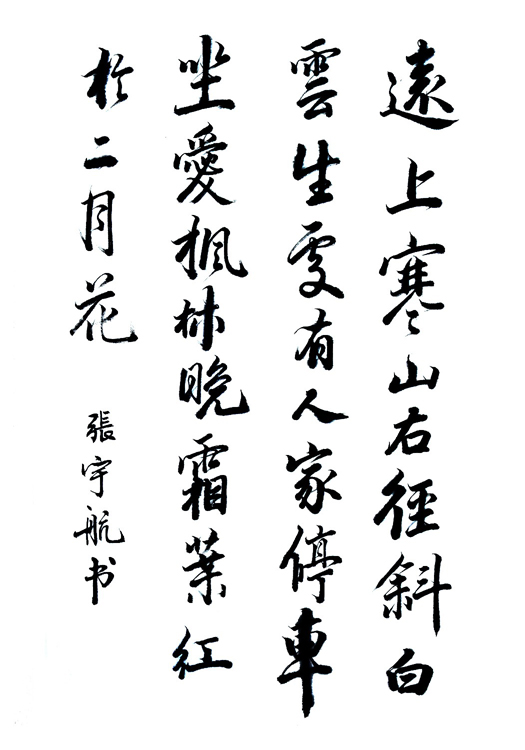 遠上寒山石徑斜白
雲生處有人家停車
坐愛楓林晚霜葉紅
於二月花
張宇航书